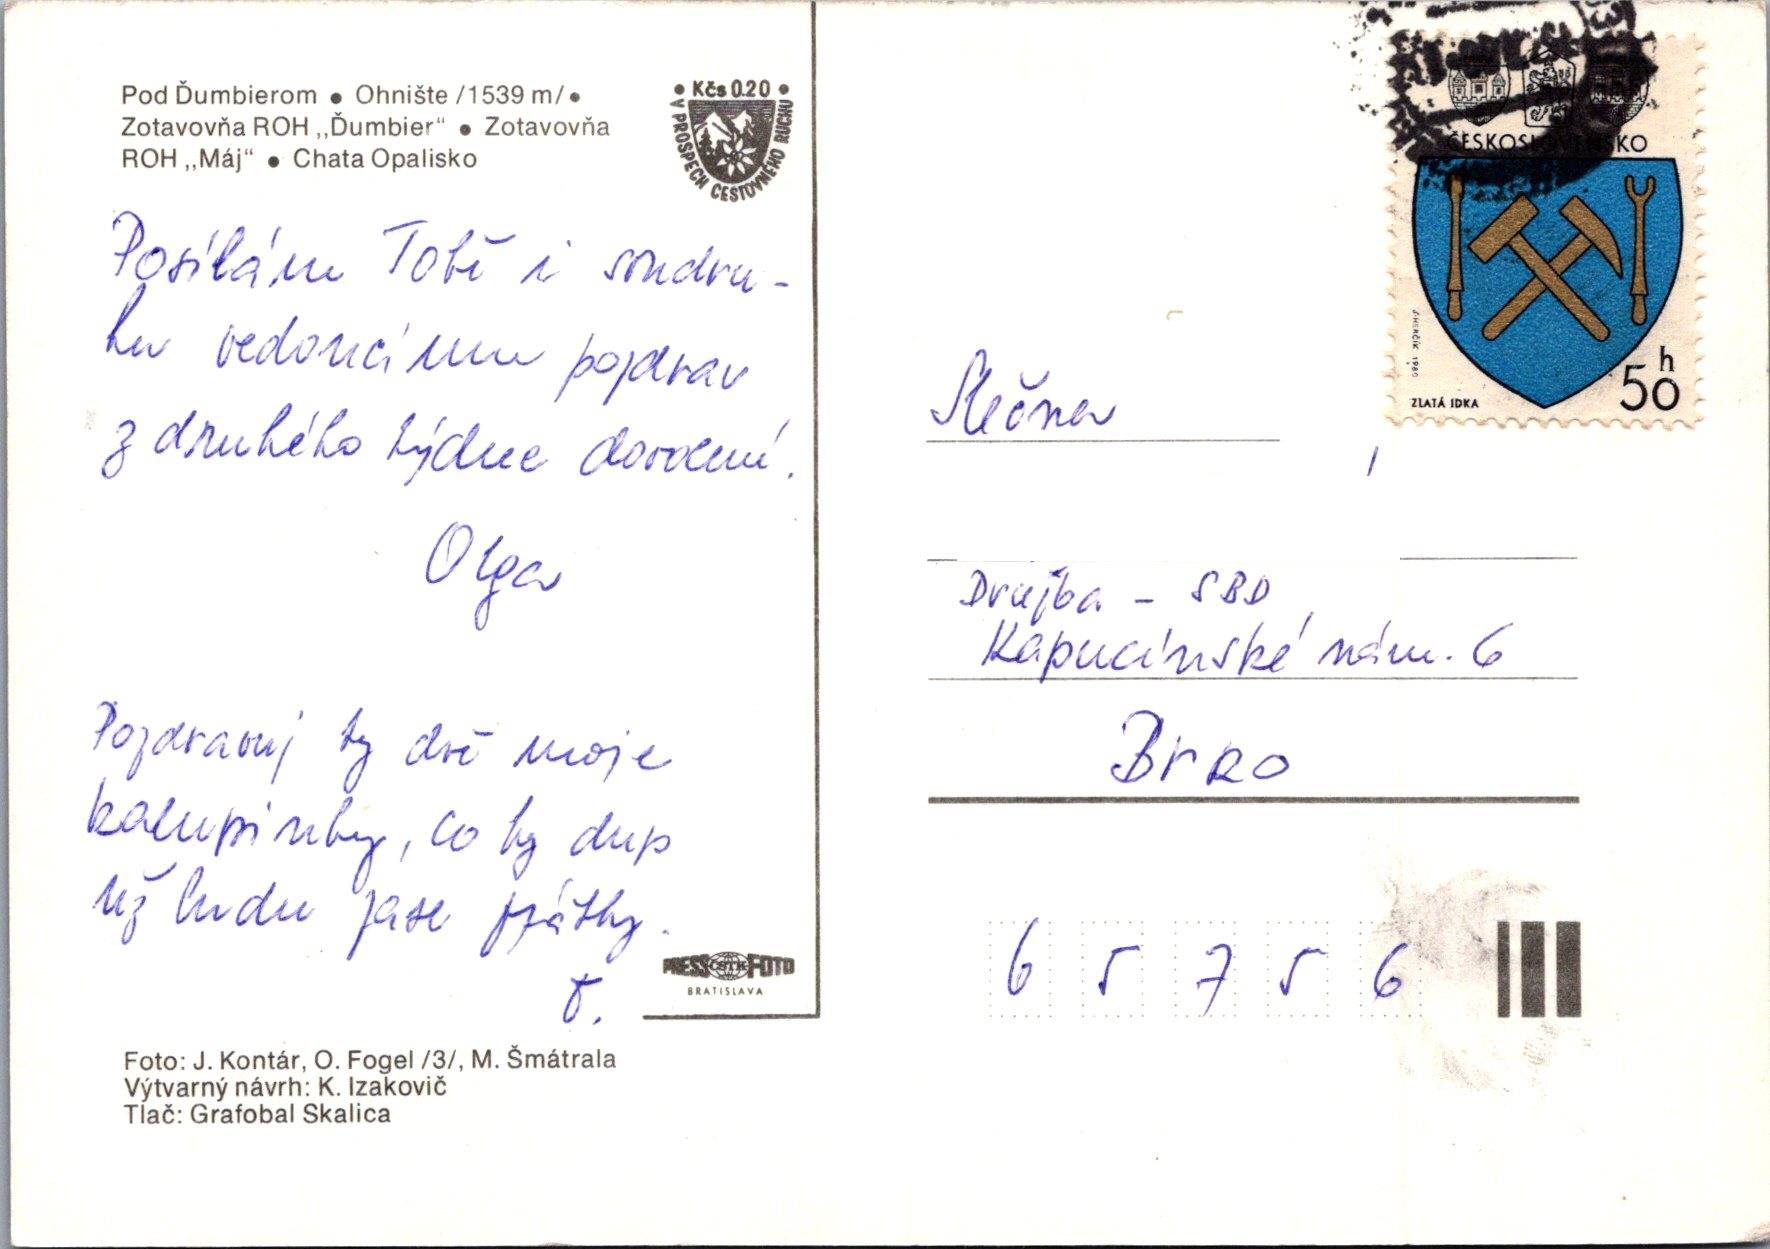 Pod Ďumbierom ● Ohnište /1539 m/ ●
Zotavovňa ROH „Ďumbier“ ● Zotavovňa
ROH „Máj“ ● Chata Opalisko
● Kčs 0.20 ●
V PROSPECH CESTOVNÉHO RUCHU
Posílám Tobě i soudru-
hu vedoucímu pozdrav
z druhého týdne dovolené.
Olga
Pozdravuj ty dvě moje
kolupinky, co by dup
už budu zase zpátky.
PRESS ČSTK FOTO
BRATISLAVA
Foto: J. Kontár, O. Fogel /3/, M. Šmátrala
Výtvarný návrh: K. Izakovič
Tlač: Grafobal Skalica
ČESKOSLOVENSKO
S. HERČÍK 1980
ZLATÁ IDKA
50 h
Slečna
Družba - SBD,
Kapucínské nám. 6
Brno
6 5 7 5 6